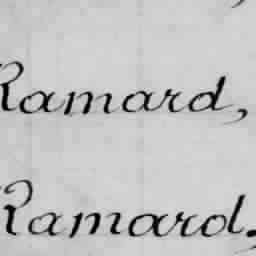 Ramard,
Ramard,